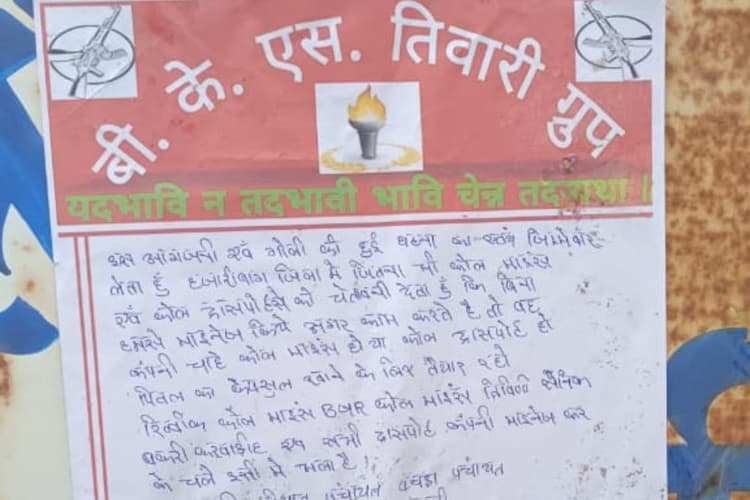 बी. के. एस. तिवारी ग्रुप
यदभावि न तदभावी भावि चेन्न तदन्यथा।
इस आगजनी एवं गोली की हुई घटना का स्वयं जिम्मेवार
लेता हुँ हजारीबाग जिला में जितना भी कोल माइंस
एवं कोल ट्रांसपोर्ट को चेतावनी देता हुँ कि बिना
हमसे मॉइनेज किये अगर काम करते है तो वह
कंपनी चाहे कोल माइंस हो या कोल ट्रांसपोर्ट हो
पितल का कैप्सुल खाने के लिए तैयार रहो
कोल माइंस BGR कोल माइंस सैनिक
एवं सभी ट्रांसपोर्ट कंपनी मॉइनेज कर
के चले इसी में भला है!
पंचायत पंचायत